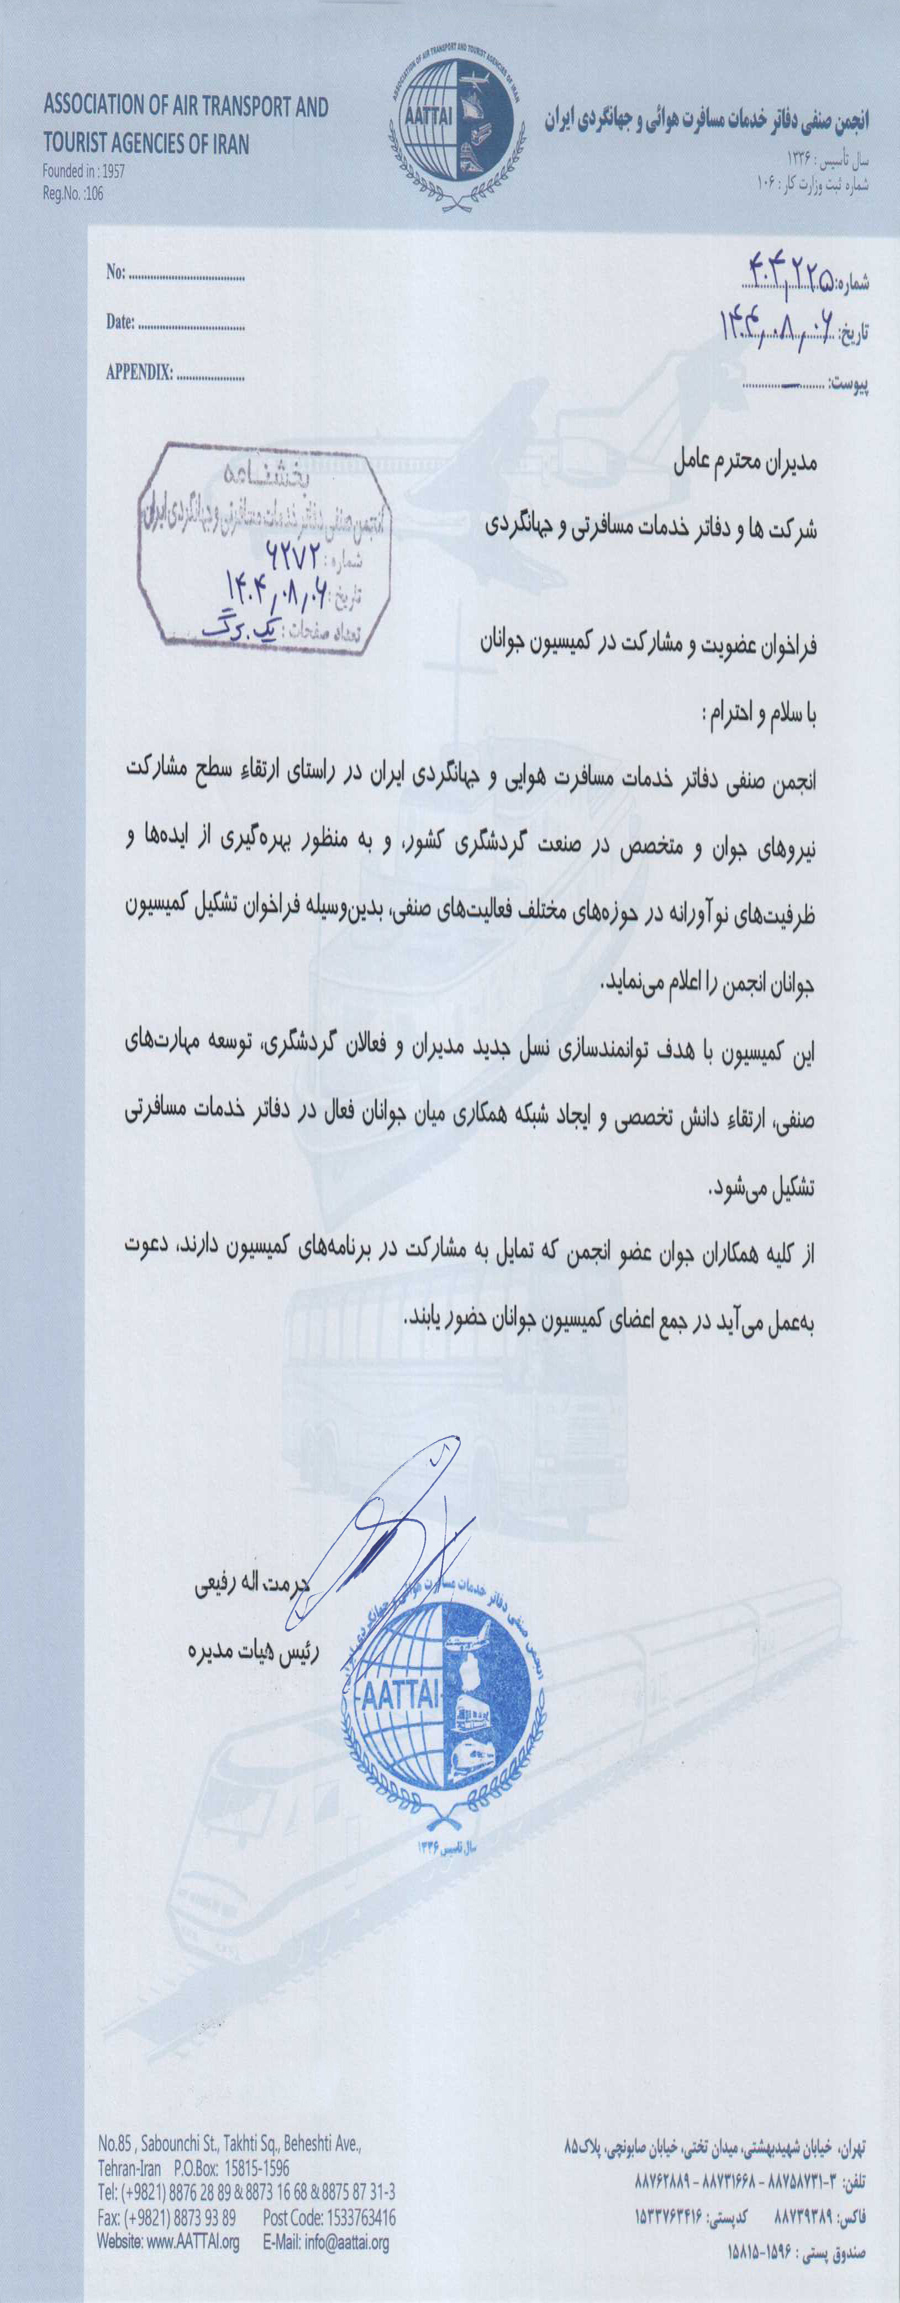 ASSOCIATION OF AIR TRANSPORT AND
TOURIST AGENCIES OF IRAN
Founded in : 1957
Reg.No. :106
ASSOCIATION OF AIR TRANSPORT AND TOURIST AGENCIES OF IRAN
AATTAI
انجمن صنفی دفاتر خدمات مسافرت هوائی و جهانگردی ایران
سال تأسیس : ۱۳۳۶
شماره ثبت وزارت کار : ۱۰۶
No:
Date:
APPENDIX:
شماره: ۴۰۴,۲۲۵
تاریخ: ۱۴۰۴,۰۸,۰۶
پیوست: —
بخشنامه
انجمن صنفی دفاتر خدمات مسافرتی و جهانگردی ایران
شماره : ۶۲۷۲
تاریخ : ۱۴۰۴,۰۸,۰۶
تعداد صفحات : یک برگ
مدیران محترم عامل
شرکت ها و دفاتر خدمات مسافرتی و جهانگردی
فراخوان عضویت و مشارکت در کمیسیون جوانان
با سلام و احترام :
انجمن صنفی دفاتر خدمات مسافرت هوایی و جهانگردی ایران در راستای ارتقاء سطح مشارکت
نیروهای جوان و متخصص در صنعت گردشگری کشور، و به منظور بهره‌گیری از ایده‌ها و
ظرفیت‌های نوآورانه در حوزه‌های مختلف فعالیت‌های صنفی، بدین‌وسیله فراخوان تشکیل کمیسیون
جوانان انجمن را اعلام می‌نماید.
این کمیسیون با هدف توانمندسازی نسل جدید مدیران و فعالان گردشگری، توسعه مهارت‌های
صنفی، ارتقاء دانش تخصصی و ایجاد شبکه همکاری میان جوانان فعال در دفاتر خدمات مسافرتی
تشکیل می‌شود.
از کلیه همکاران جوان عضو انجمن که تمایل به مشارکت در برنامه‌های کمیسیون دارند، دعوت
به‌عمل می‌آید در جمع اعضای کمیسیون جوانان حضور یابند.
حرمت اله رفیعی
رئیس هیات مدیره
انجمن صنفی دفاتر خدمات مسافرت هوائی و جهانگردی ایران
AATTAI
سال تاسیس ۱۳۳۶
No.85 , Sabounchi St., Takhti Sq., Beheshti Ave.,
Tehran-Iran P.O.Box: 15815-1596
Tel: (+9821) 8876 28 89 & 8873 16 68 & 8875 87 31-3
Fax: (+9821) 8873 93 89 Post Code: 1533763416
Website: www.AATTAI.org E-Mail: info@aattai.org
تهران، خیابان شهیدبهشتی، میدان تختی، خیابان صابونچی، پلاک۸۵
تلفن: ۳-۸۸۷۵۸۷۳۱ - ۸۸۷۳۱۶۶۸ - ۸۸۷۶۲۸۸۹
فاکس: ۸۸۷۳۹۳۸۹ کدپستی: ۱۵۳۳۷۶۳۴۱۶
صندوق پستی : ۱۵۹۶-۱۵۸۱۵